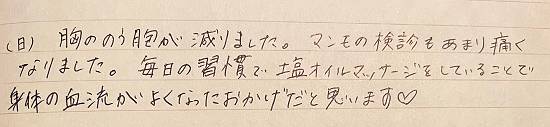 (日) 胸ののう胞が減りました。マンモの検診もあまり痛く
なりました。毎日の習慣で塩オイルマッサージをしていることで
身体の血流がよくなったおかげだと思います♡